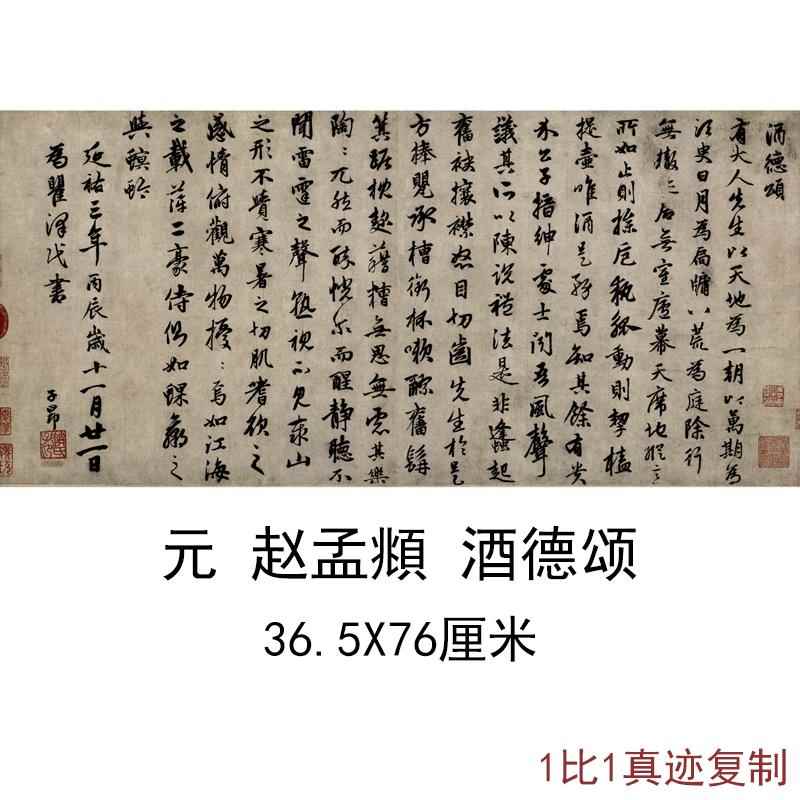 酒德頌
有大人先生以天地為一朝以萬期為
須臾日月為扃牖八荒為庭除行
無轍跡居無室廬幕天席地縱意
所如止則操卮執瓢動則挈榼
提壺唯酒是務焉知其餘有貴
介公子搢紳處士聞吾風聲
議其所以陳說禮法是非蠭起
奮袂攘襟怒目切齒先生於是
方捧甖承槽銜杯漱醪奮髯
箕踞枕麴藉糟無思無慮其樂
陶:兀然而醉恍尓而醒靜聽不
聞雷霆之聲熟視不見泰山
之形不覺寒暑之切肌嗜欲之
感情俯觀萬物擾:焉如江海
之載萍二豪侍側如蜾蠃之
與螟蛉
延祐三年丙辰歲十一月廿一日
為瞿澤民書
子昂
元 赵孟頫 酒德颂
36.5X76厘米
1比1真迹复制